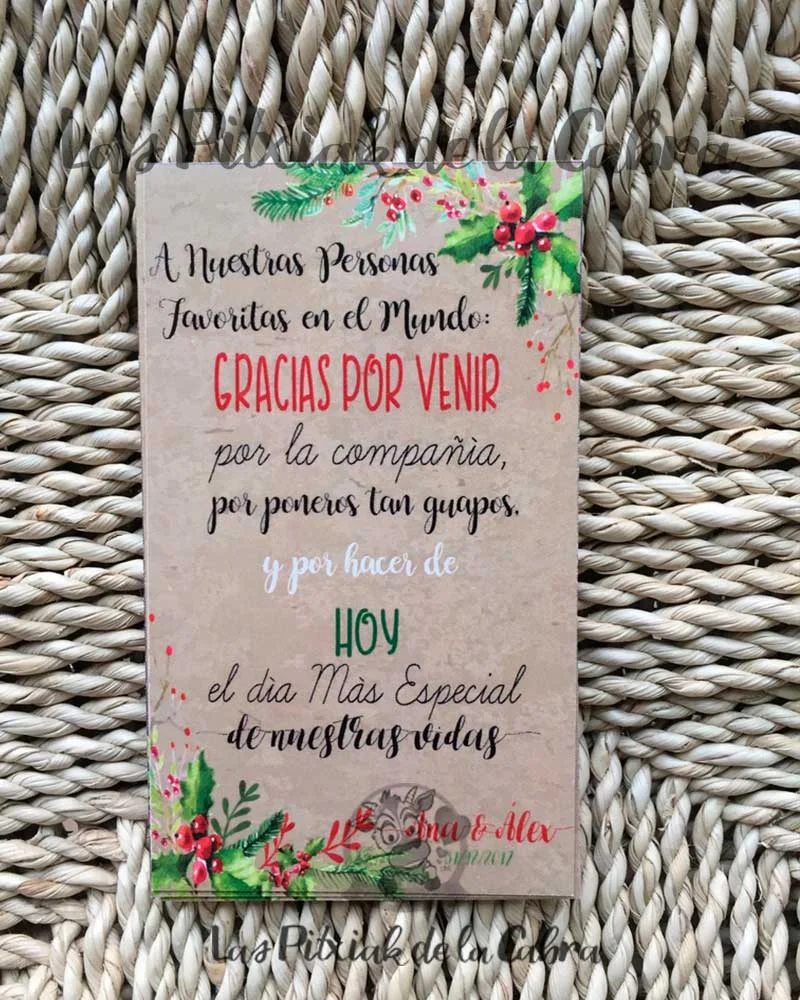 Las Pitxiak de la Cabra
A Nuestras Personas
Favoritas en el Mundo:
GRACIAS POR VENIR
por la compañìa,
por poneros tan guapos.
y por hacer de
HOY
el dìa Màs Especial
de nuestras vidas
Ana & Álex
Las Pitxiak de la Cabra